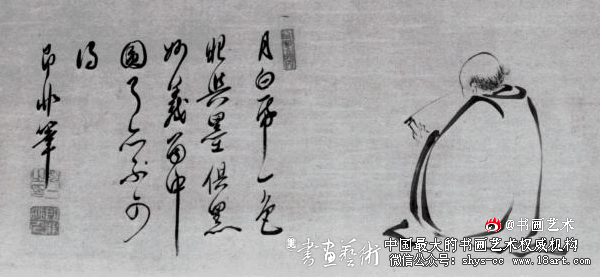 月白帋一色
眼與墨俱黑
妙義當中
圓了然不可
得
即非筆
書畫藝術
@书画艺术
中国最大的书画艺术权威机构
微信公众号:shys-cc www.18art.com